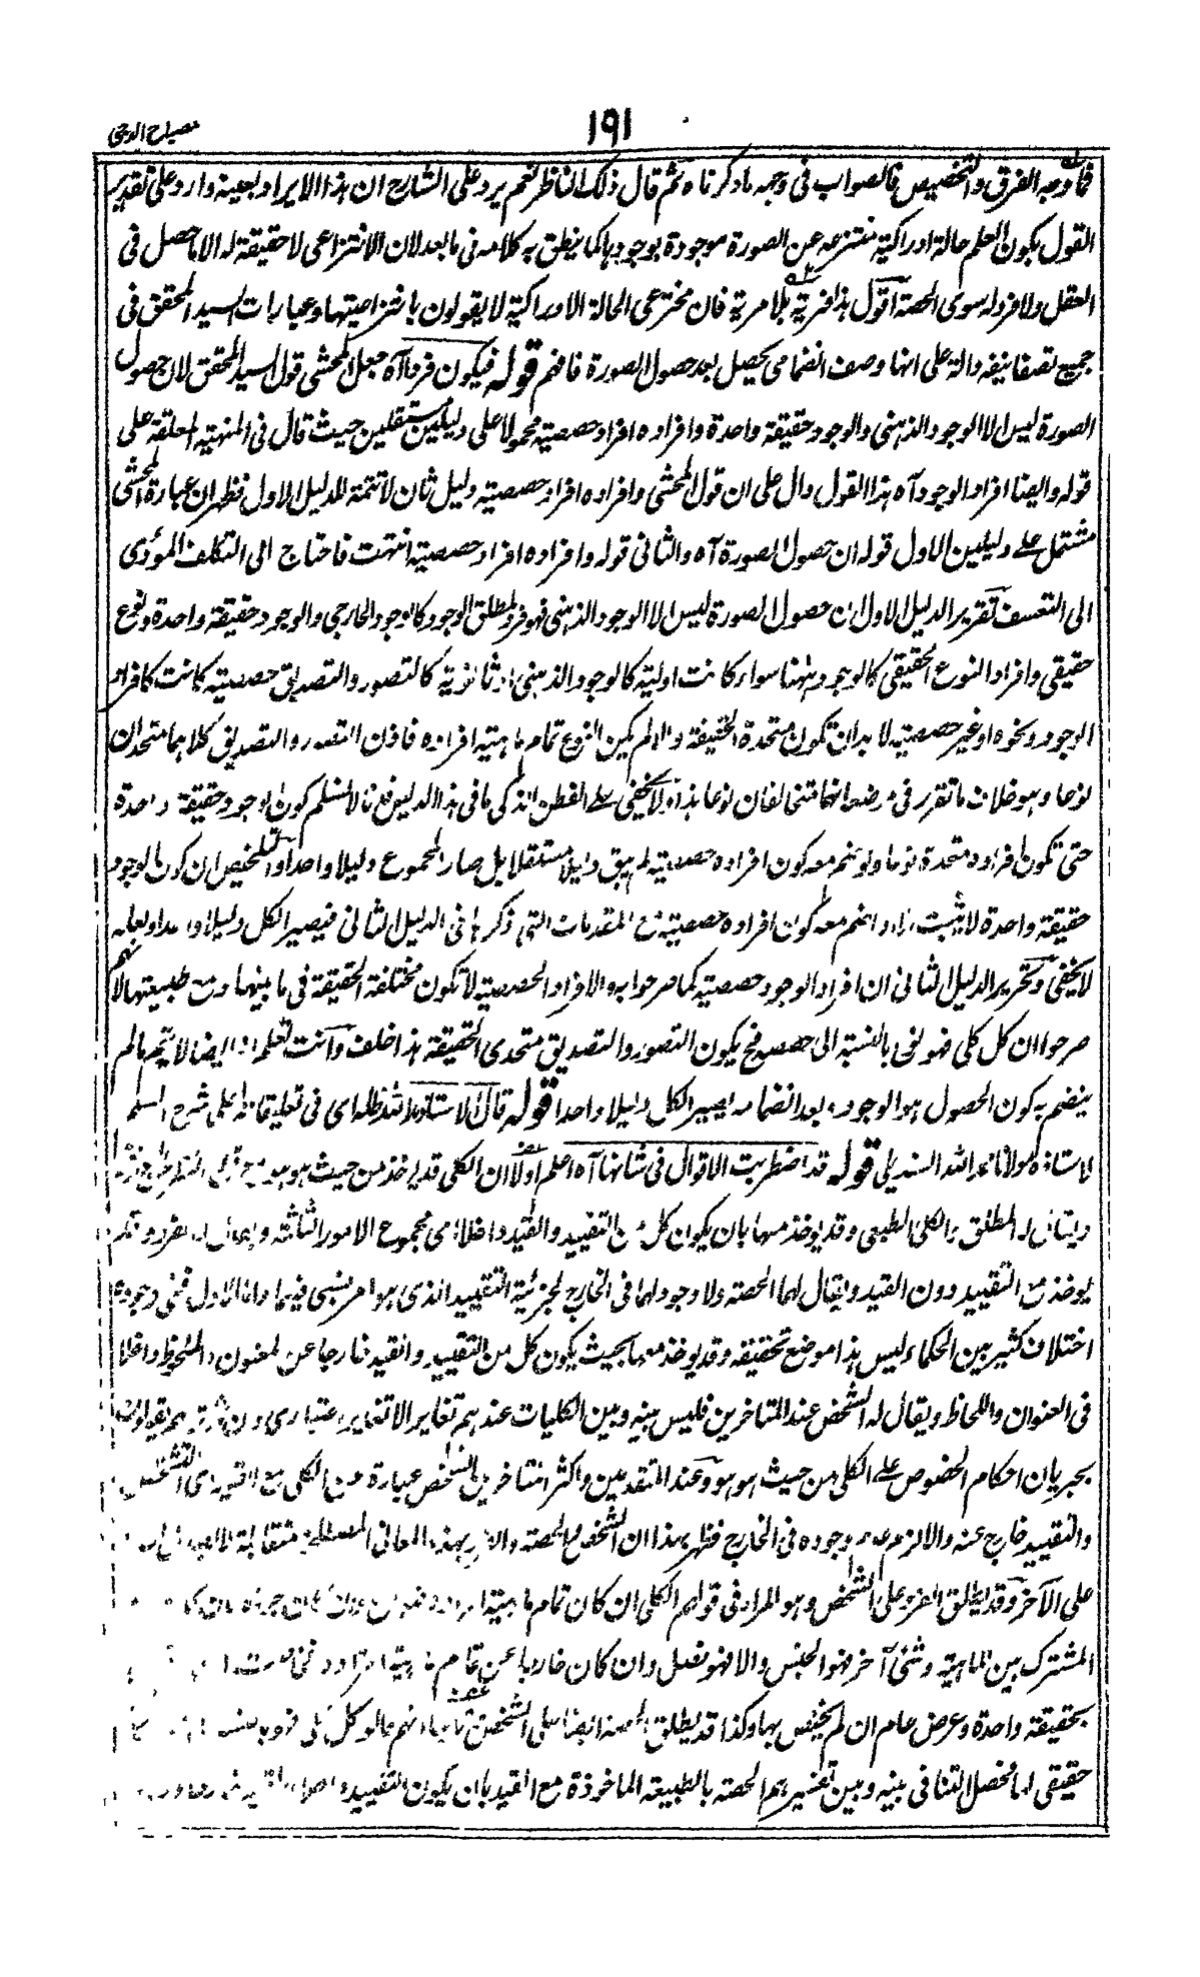 مصباح الدجى
١٩١
فما وجه الفرق والتخصيص فالصواب فى وجهه ما ذكرناه ثم قال ذلك الناظر نعم يرد على الشارح ان هذا الايراد بعينه وارد على تقدير
القول بكون العلم حالة ادراكية منتزعه عن الصورة موجودة بوجودها كما ينطق به كلامه فى ما بعد لان الانتزاعى لا حقيقة له الا ما حصل فى
العقل ولا فرد له سوى الحصة اقول هذا فرية بلا مرية فان مخترعى الحالة الادراكية لا يقولون بانتزاعيتها وعبارات السيد المحقق فى
جميع تصانيفه دالة على انها وصف انضمامى يحصل بعد حصول الصورة فافهم قوله فيكون فردا آه جعل المحشى قول السيد المحقق لان حصول
الصورة ليس الا الوجود الذهنى والوجود حقيقة واحدة وافراده افراد حصصية محمولا على دليلين مستقلين حيث قال فى المنهية المعلقة على
قوله وايضا افراد الوجود آه هذا القول دال على ان قول المحشى وافراده افراد حصصية دليل ثان لا تتمة للدليل الاول فظهر ان عبارة المحشى
مشتمل على دليلين الاول قوله ان حصول الصورة آه والثانى قوله وافراده افراد حصصية انتهت فاحتاج الى التكلف المؤدى
الى التعسف تقرير الدليل الاول ان حصول الصورة ليس الا الوجود الذهنى فهو فرد لمطلق الوجود كالوجود الخارجى والوجود حقيقة واحدة ونوع
حقيقى وافراد النوع الحقيقى كالوجود ههنا سواء كانت اولية كالوجود الذهنى او ثانوية كالتصور والتصديق حصصية كانت كافراد
الوجود ونحوه او غير حصصية لا بد ان تكون متحدة الحقيقة والا لم يكن النوع تمام ماهية افراده فاذن التصور والتصديق كلاهما متحدان
نوعا وهو خلاف ما تقرر فى موضعه انهما مختلفان نوعا هذا ولا يخفى على الفطن الذكى ما فى هذا الدليل فانا لا نسلم كون الوجود حقيقة واحدة
حتى تكون افراده متحدة نوعا ولو ضم معه كون افراده حصصية لم يبق دليلا مستقلا بل صار المجموع دليلا واحدا والتلخيص ان كون الوجود
حقيقة واحدة لا يثبت الا اذا ضم معه كون افراده حصصية مع المقدمات التى ذكرها فى الدليل الثانى فيصير الكل دليلا واحدا ولعله
لا يخفى وتحرير الدليل الثانى ان افراد الوجود حصصية كما صرحوا به والافراد الحصصية لا تكون مختلفة الحقيقة فى ما بينها ومع طبيعتها لانهم
صرحوا ان كل كلى فهو نوع بالنسبة الى حصصه فح يكون التصور والتصديق متحدى الحقيقة هذا خلف وانت تعلم انه ايضا لا يتم ما لم
ينضم به كون الحصول هو الوجود وبعد انضمامه يصير الكل دليلا واحدا قوله قال الاستاذ مد ظله اى فى تعليقاته على شرح السلم
لاستاذه مولانا حمد الله السنديلى قوله قد اضطربت الاقوال فى شانها آه اعلم اولا ان الكلى قد يؤخذ من حيث هو هو مع عزل النظر
ويقال له المطلق والكلى الطبعى وقد يؤخذ منها بان يكون كل من التقييد والقيد داخلا فى مجموع الامور الثلثة ويقال له الفرد وقد
يوخذ مع التقييد دون القيد ويقال لها الحصة ولا وجود لهما فى الخارج لجزئية التقييد الذى هو امر نسبى فيهما واما الاول ففى وجوده
اختلاف كثير بين الحكماء ليس هذا موضع تحقيقه وقد يوخذ معها بحيث يكون كل من التقييد والقيد خارجا عن المعنون والملحوظ داخلا
فى العنوان واللحاظ ويقال له الشخص عند المتاخرين فليس بينه وبين الكليات عندهم تغاير الا تغاير اعتبارى ومن ثم تريهم يقولون
بجريان احكام الخصوص على الكلى من حيث هو هو وعند المتقدمين واكثر المتاخرين الشخص عبارة عن الكلى مع القيد اى التشخص
والتقييد خارج عنه والا لزم عدم وجوده فى الخارج فظهر بهذا ان الشخص والحصة والفرد بهذه المعانى المصطلحة متقابلة
على الآخر وقد يطلق الفرد على الشخص وهو المراد فى قولهم الكلى ان كان تمام ماهية افراده
المشترك بين الماهية وشئ آخر فهو الجنس والا فهو فصل وان كان خارجا عن تمام ماهية افراده
بحقيقة واحدة وعرض عام ان لم يختص بها وكذا قد يطلق الحصة ايضا على الشخص فانهم قالوا كل كلى فهو بالنسبة
حقيقى لها فحصل التنافى بينه وبين تفسيرهم الحصة بالطبيعة الماخوذة مع القيد بان يكون التقييد داخلا